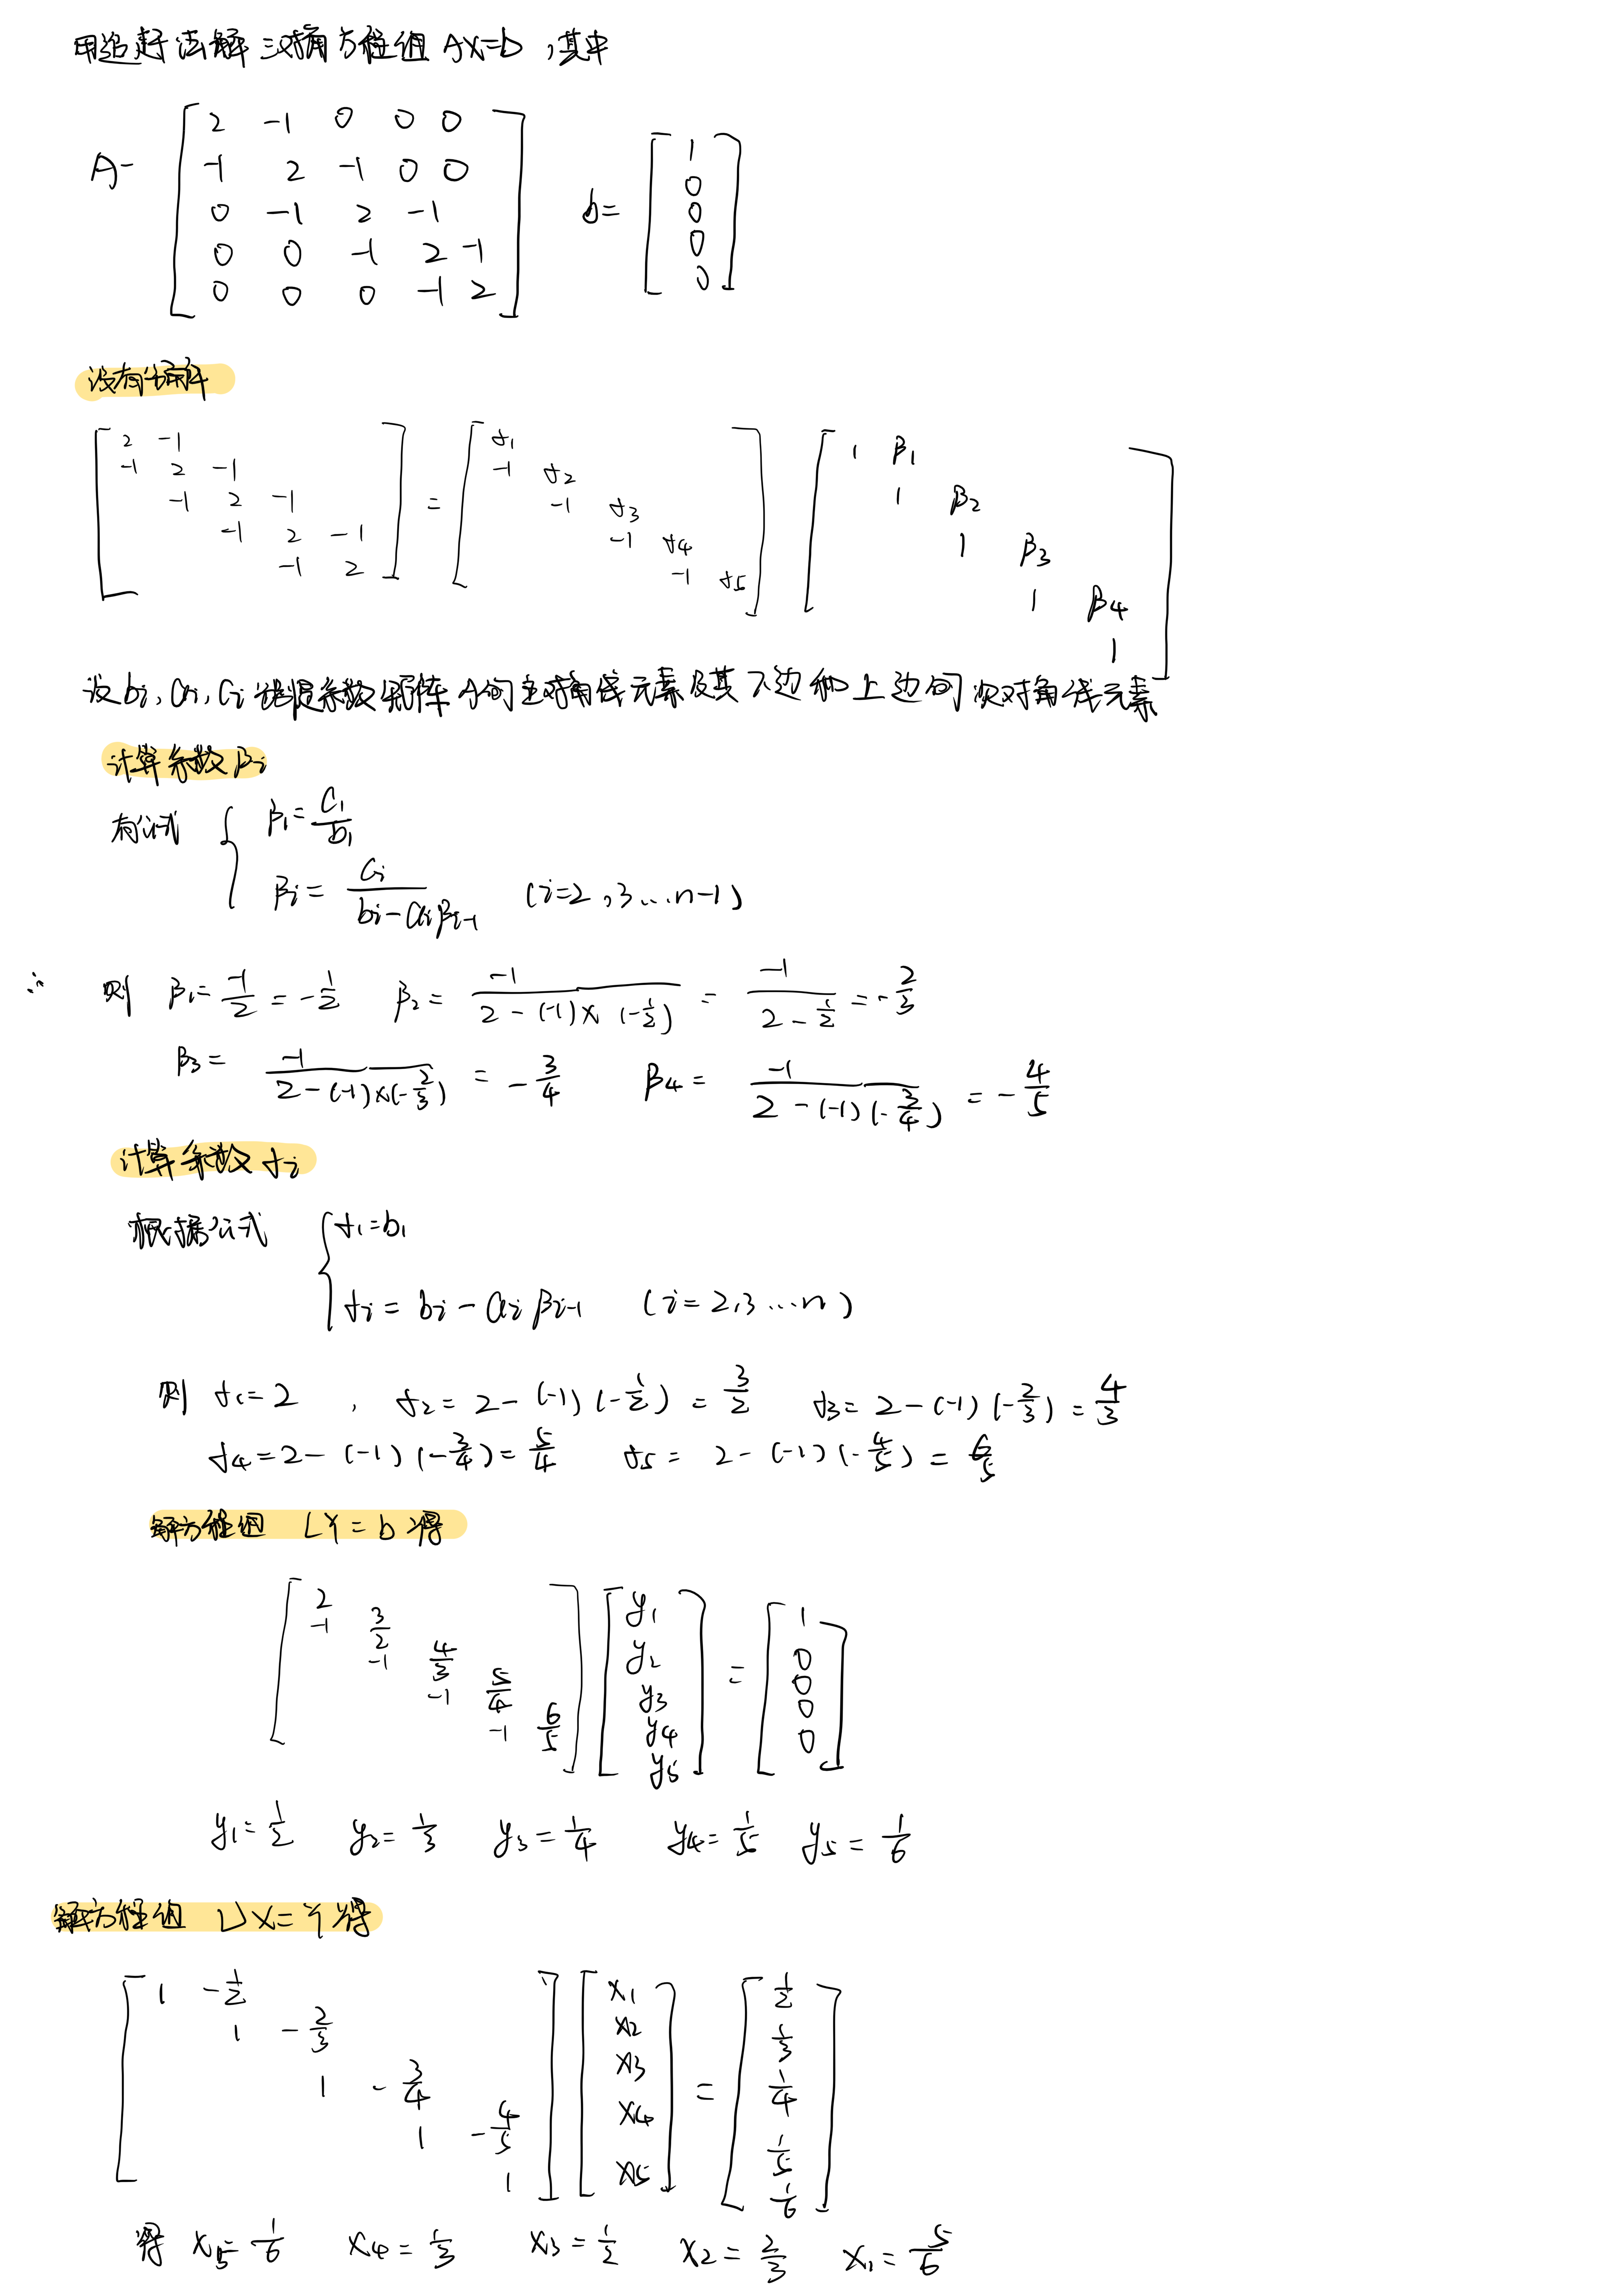 用追赶法解三对角方程组 Ax=b ,其中
A= [2 -1 0 0 0
-1 2 -1 0 0
0 -1 2 -1
0 0 -1 2 -1
0 0 0 -1 2] b= [1 0 0 0 0]
设有分解
[2 -1
-1 2 -1
-1 2 -1
-1 2 -1
-1 2] = [α1
-1 α2
-1 α3
-1 α4
-1 α5] [1 β1
1 β2
1 β3
1 β4
1]
设 bi, ai, ci 是系数矩阵 A的主对角线元素及其下边和上边的次对角线元素
计算系数 βi
有公式 { β1 = c1/b1
βi = ci/(bi-aiβi-1) (i=2,3...n-1)
∴ 则 β1 = -1/2 = -1/2 β2 = -1/(2-(-1)×(-1/2)) = -1/(2-1/2) = -2/3
β3 = -1/(2-(-1)×(-2/3)) = -3/4 β4 = -1/(2-(-1)(-3/4)) = -4/5
计算系数 αi
根据公式 { α1=b1
αi = bi - ai βi-1 (i=2,3...n)
则 α1=2 , α2=2-(-1)(-1/2)=3/2 α3=2-(-1)(-2/3)=4/3
α4=2-(-1)(-3/4)=5/4 α5=2-(-1)(-4/5)=6/5
解方程组 LY=b 得
[2
-1 3/2
-1 4/3
-1 5/4
-1 6/5] [y1 y2 y3 y4 y5] = [1 0 0 0 0]
y1=1/2 y2=1/3 y3=1/4 y4=1/5 y5=1/6
解方程组 UX=Y得
[1 -1/2
1 -2/3
1 -3/4
1 -4/5
1] [x1 x2 x3 x4 x5] = [1/2 1/3 1/4 1/5 1/6]
得 x5=1/6 x4=1/3 x3=1/2 x2=2/3 x1=5/6